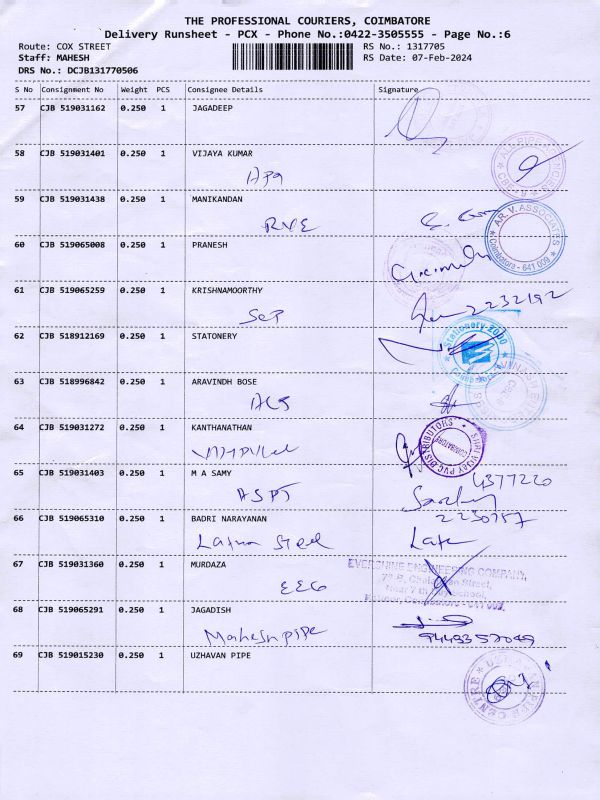 THE PROFESSIONAL COURIERS, COIMBATORE
Delivery Runsheet - PCX - Phone No.:0422-3505555 - Page No.:6
Route: COX STREET RS No.: 1317705
Staff: MAHESH RS Date: 07-Feb-2024
DRS No.: DCJB131770506
S No Consignment No Weight PCS Consignee Details Signature
57 CJB 519031162 0.250 1 JAGADEEP
58 CJB 519031401 0.250 1 VIJAYA KUMAR
59 CJB 519031438 0.250 1 MANIKANDAN
RVE
AR. V. ASSOCIATES
Coimbatore - 641 009
60 CJB 519065008 0.250 1 PRANESH
61 CJB 519065259 0.250 1 KRISHNAMOORTHY
2232192
62 CJB 518912169 0.250 1 STATONERY
Stationery 2000
Coimbatore
63 CJB 518996842 0.250 1 ARAVINDH BOSE
64 CJB 519031272 0.250 1 KANTHANATHAN
SHRI VIJAY PVC DISTRIBUTORS
COIMBATORE
65 CJB 519031403 0.250 1 M A SAMY
4377220
66 CJB 519065310 0.250 1 BADRI NARAYANAN
2230757
Steel
67 CJB 519031360 0.250 1 MURDAZA
EEC
EVERSHINE ENGINEERING COMPANY,
68 CJB 519065291 0.250 1 JAGADISH
Mahesh pipe
9443357049
69 CJB 519015230 0.250 1 UZHAVAN PIPE